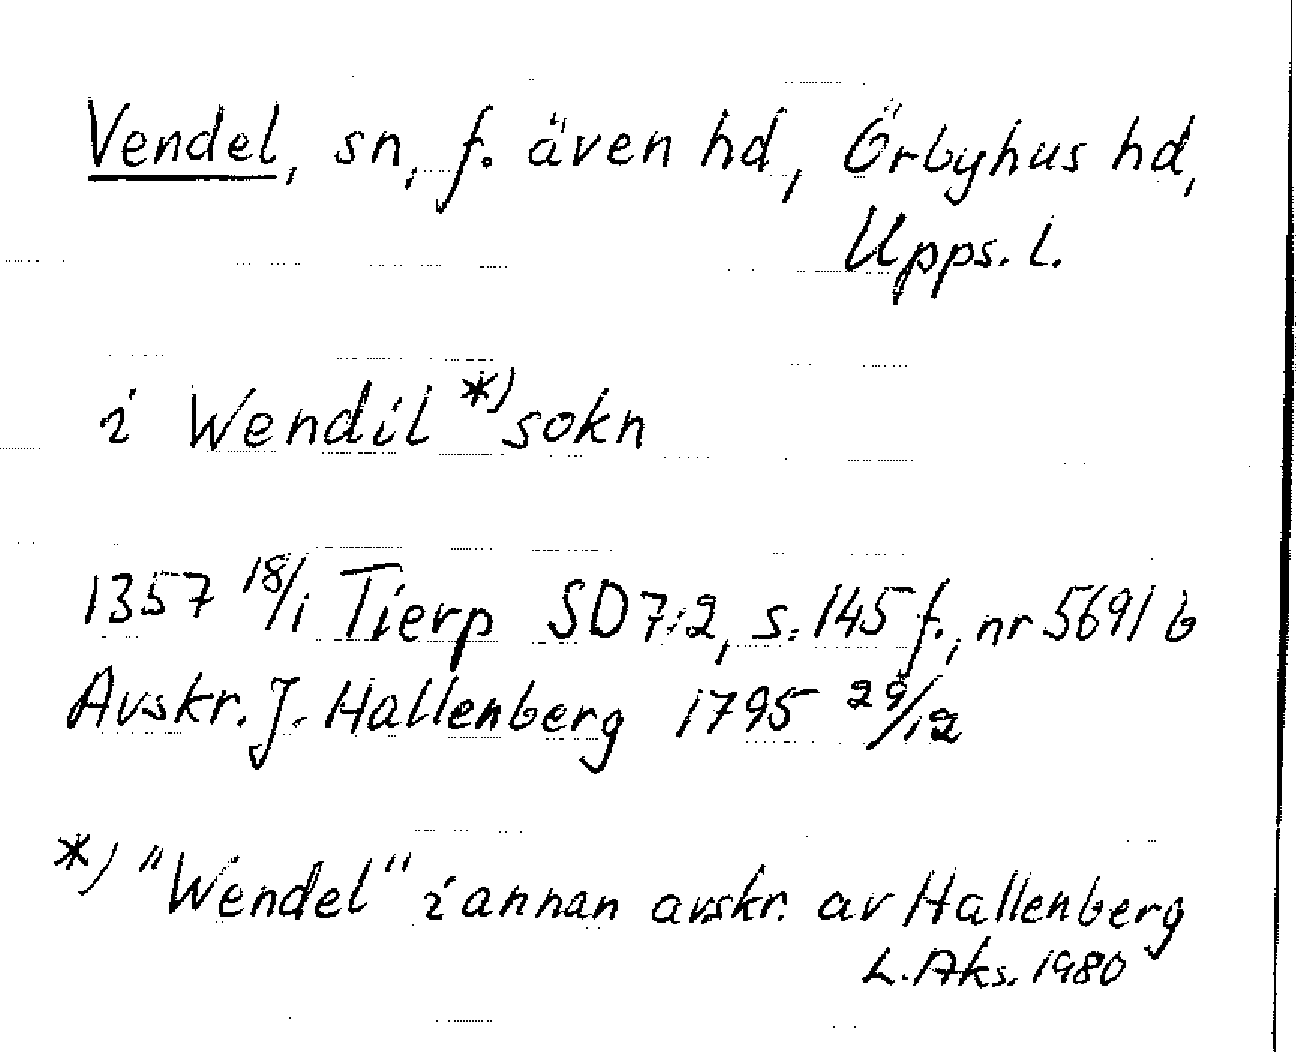 Vendel, sn, f. även hd, Örbyhus hd,
Upps. l.
i Wendil *) sokn
1357 18/1 Tierp SD 7:2, s. 145 f., nr 5691 b
Avskr. J. Hallenberg 1795 29/12
*) "Wendel" i annan avskr. av Hallenberg
L. Aks. 1980